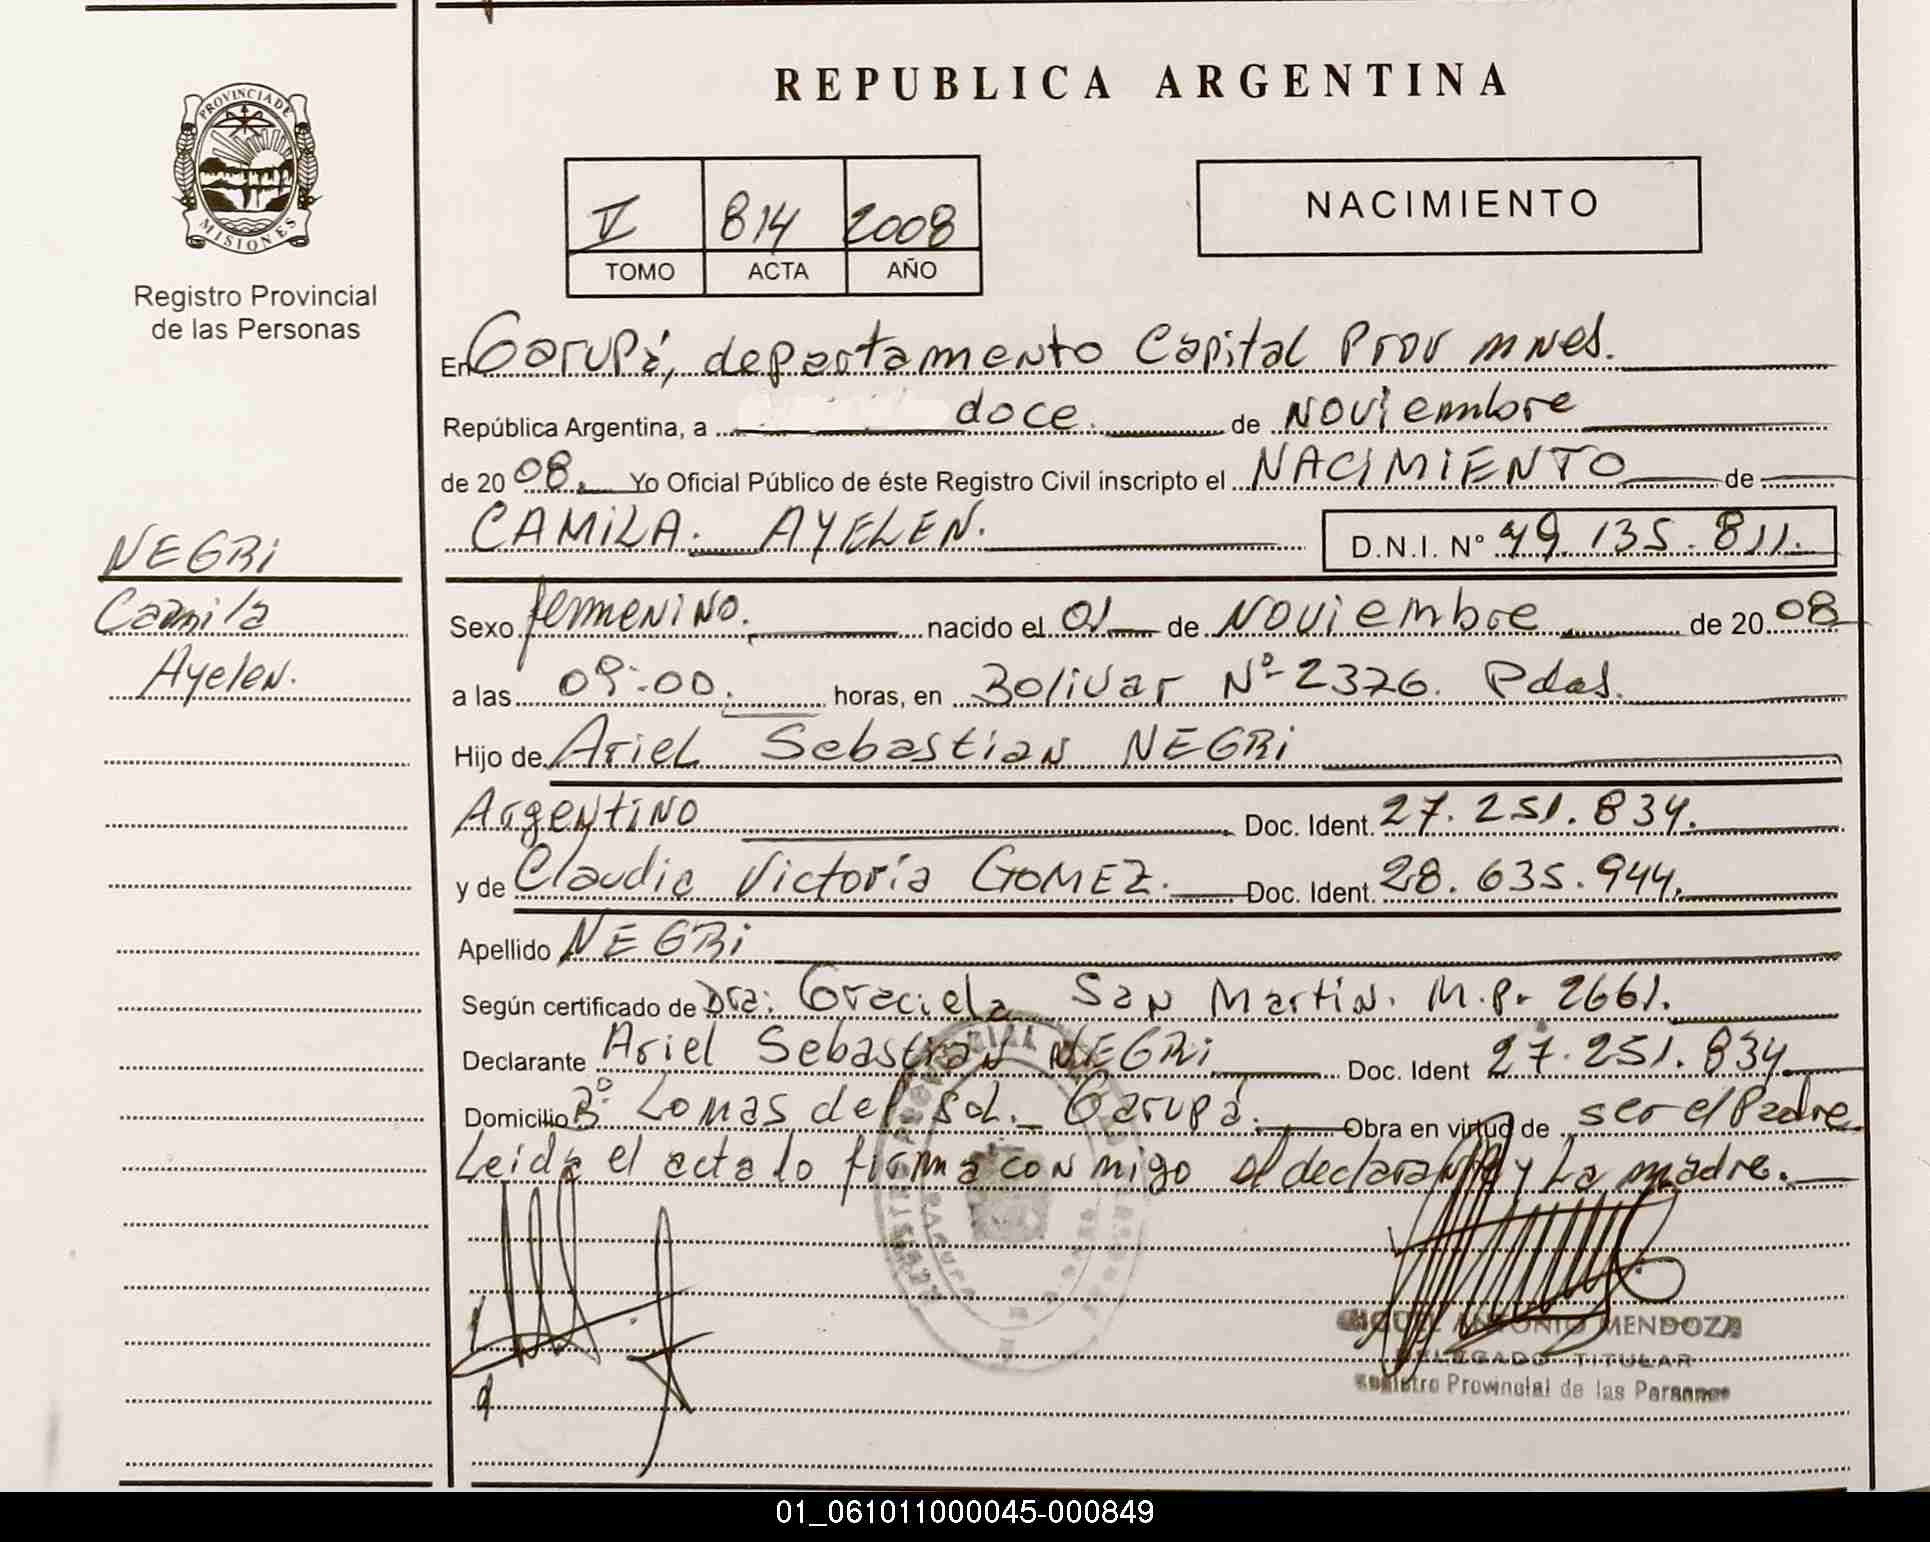 REPUBLICA ARGENTINA
PROVINCIA DE
MISIONES
Registro Provincial
de las Personas
V 814 2008
TOMO ACTA AÑO
NACIMIENTO
En Garupá, departamento Capital Prov mnes.
República Argentina, a doce. de Noviembre
de 20 08. Yo Oficial Público de éste Registro Civil inscripto el NACIMIENTO de
CAMILA. AYELEN. D.N.I. N° 49.135.811.
NEGRi
Camila
Ayelen.
Sexo femenino. nacido el 01 de Noviembre de 20 08
a las 09:00. horas, en Bolivar Nº 2376. Pdas.
Hijo de Ariel Sebastian NEGRi
Argentino Doc. Ident. 27.251.834.
y de Claudia Victoria GOMEZ. Doc. Ident. 28.635.944.
Apellido NEGRi
Según certificado de Dra: Graciela San Martin. M.P. 2661.
Declarante Ariel Sebastian NEGRi Doc. Ident 27.251.834
Domicilio Bº Lomas del Sol. Garupá. Obra en virtud de ser el Padre
Leida el acta lo firma conmigo el declarante y La madre.
ANTONIO MENDOZA
DELEGADO TITULAR
Registro Provincial de las Personas
GARUPA
01_061011000045-000849